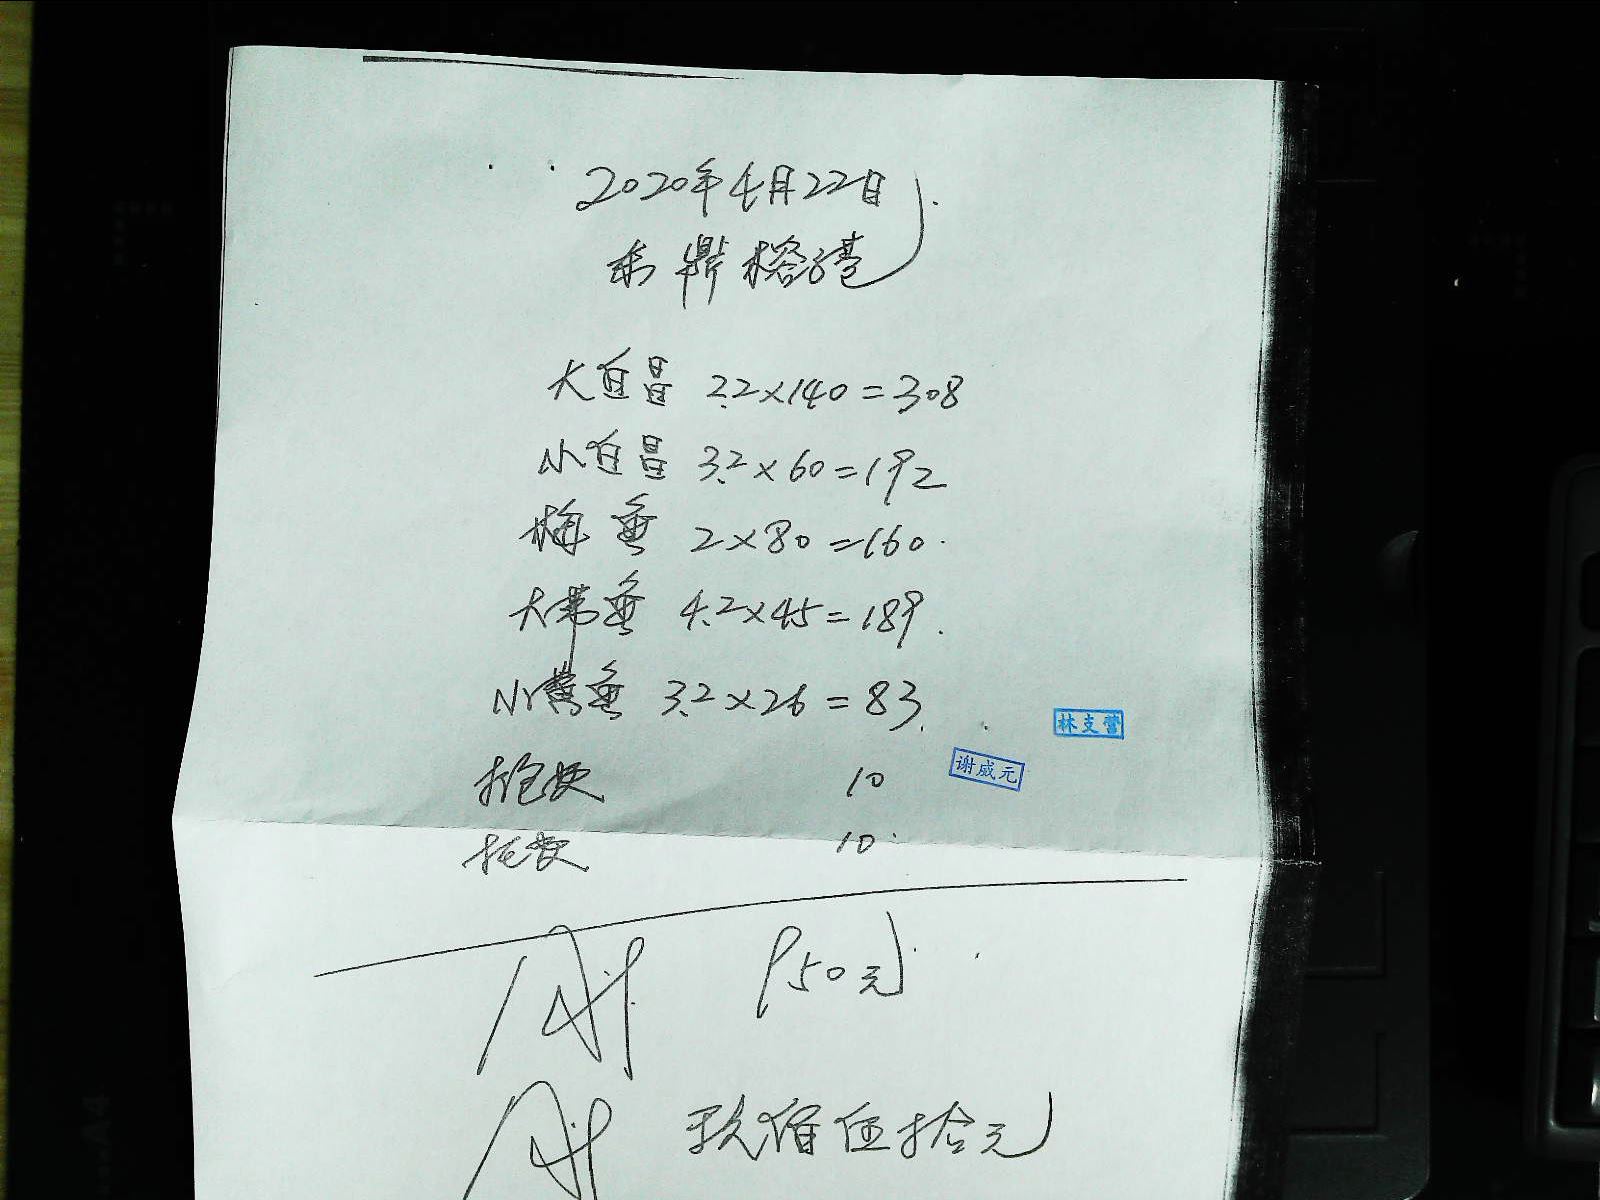 2020年4月22日
东鼎榕港
大白昌 2.2×140=308
小白昌 3.2×60=192
梅鱼 2×80=160.
大带鱼 4.2×45=189.
小黄鱼 3.2×26=83.
林支营
10
谢威元
托费 10
950元
玖佰伍拾元